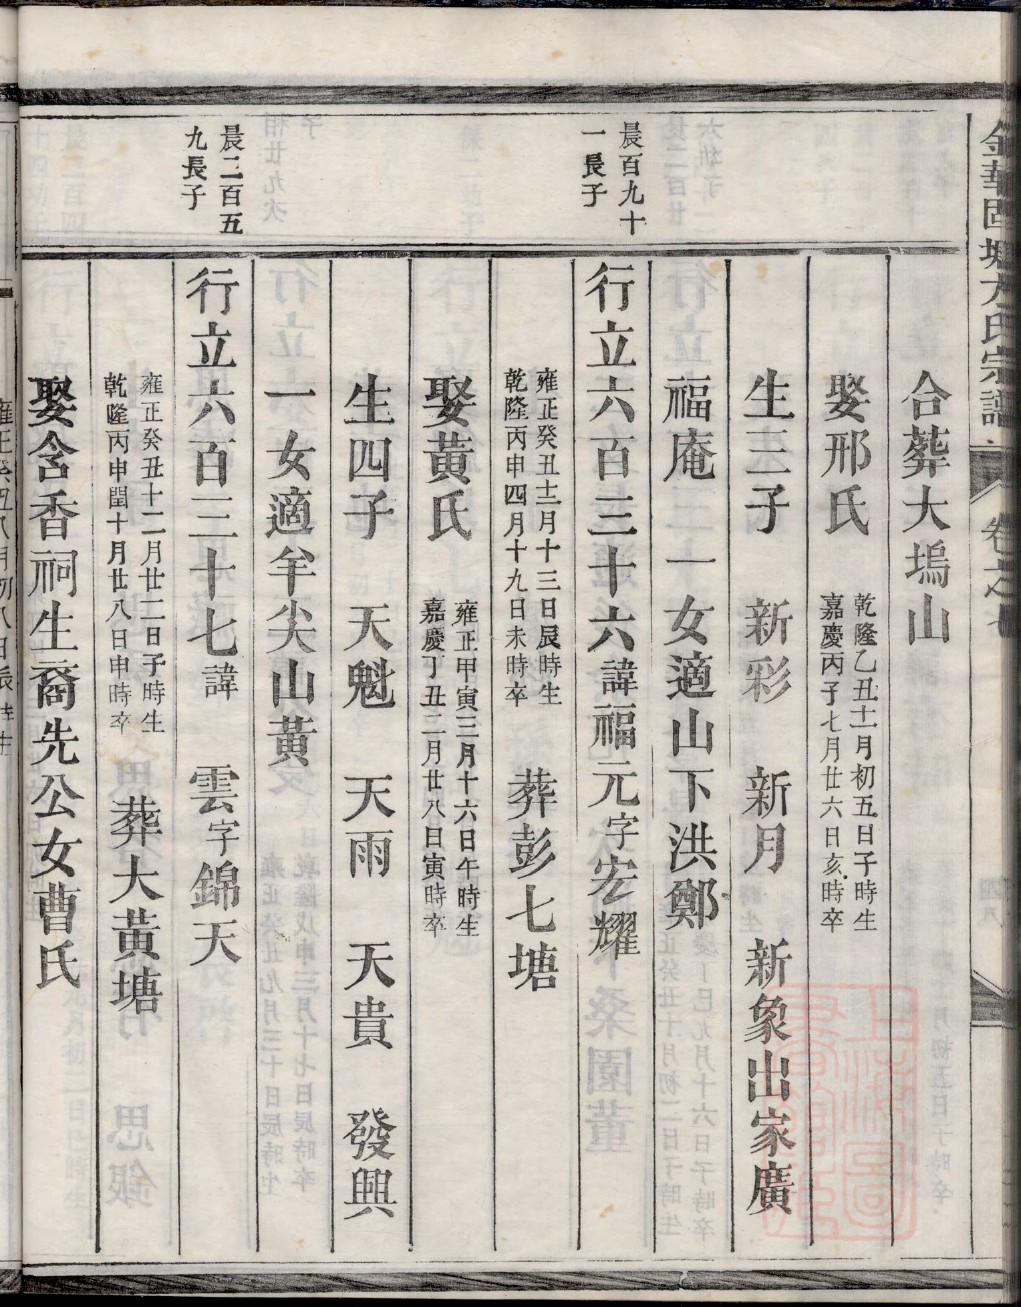 金華固塘方氏宗譜
合葬大塢山
娶邢氏
乾隆乙丑十一月初五日子時生
嘉慶丙子七月廿六日亥時卒
生三子 新彩 新月 新象出家廣
福庵 一女適山下洪鄭
晨百九十
一長子
行立六百三十六諱福元字宏耀
雍正癸丑十二月十三日辰時生
乾隆丙申四月十九日未時卒
葬彭七塘
娶黃氏
雍正甲寅三月十六日午時生
嘉慶丁丑二月廿八日寅時卒
生四子 天魁 天雨 天貴 發興
一女適牟尖山黃
晨二百五
九長子
行立六百三十七諱 雲字錦天
雍正癸丑十二月廿二日子時生
乾隆丙申閏十月廿八日申時卒
葬大黃塘
娶含香祠生裔先公女曹氏